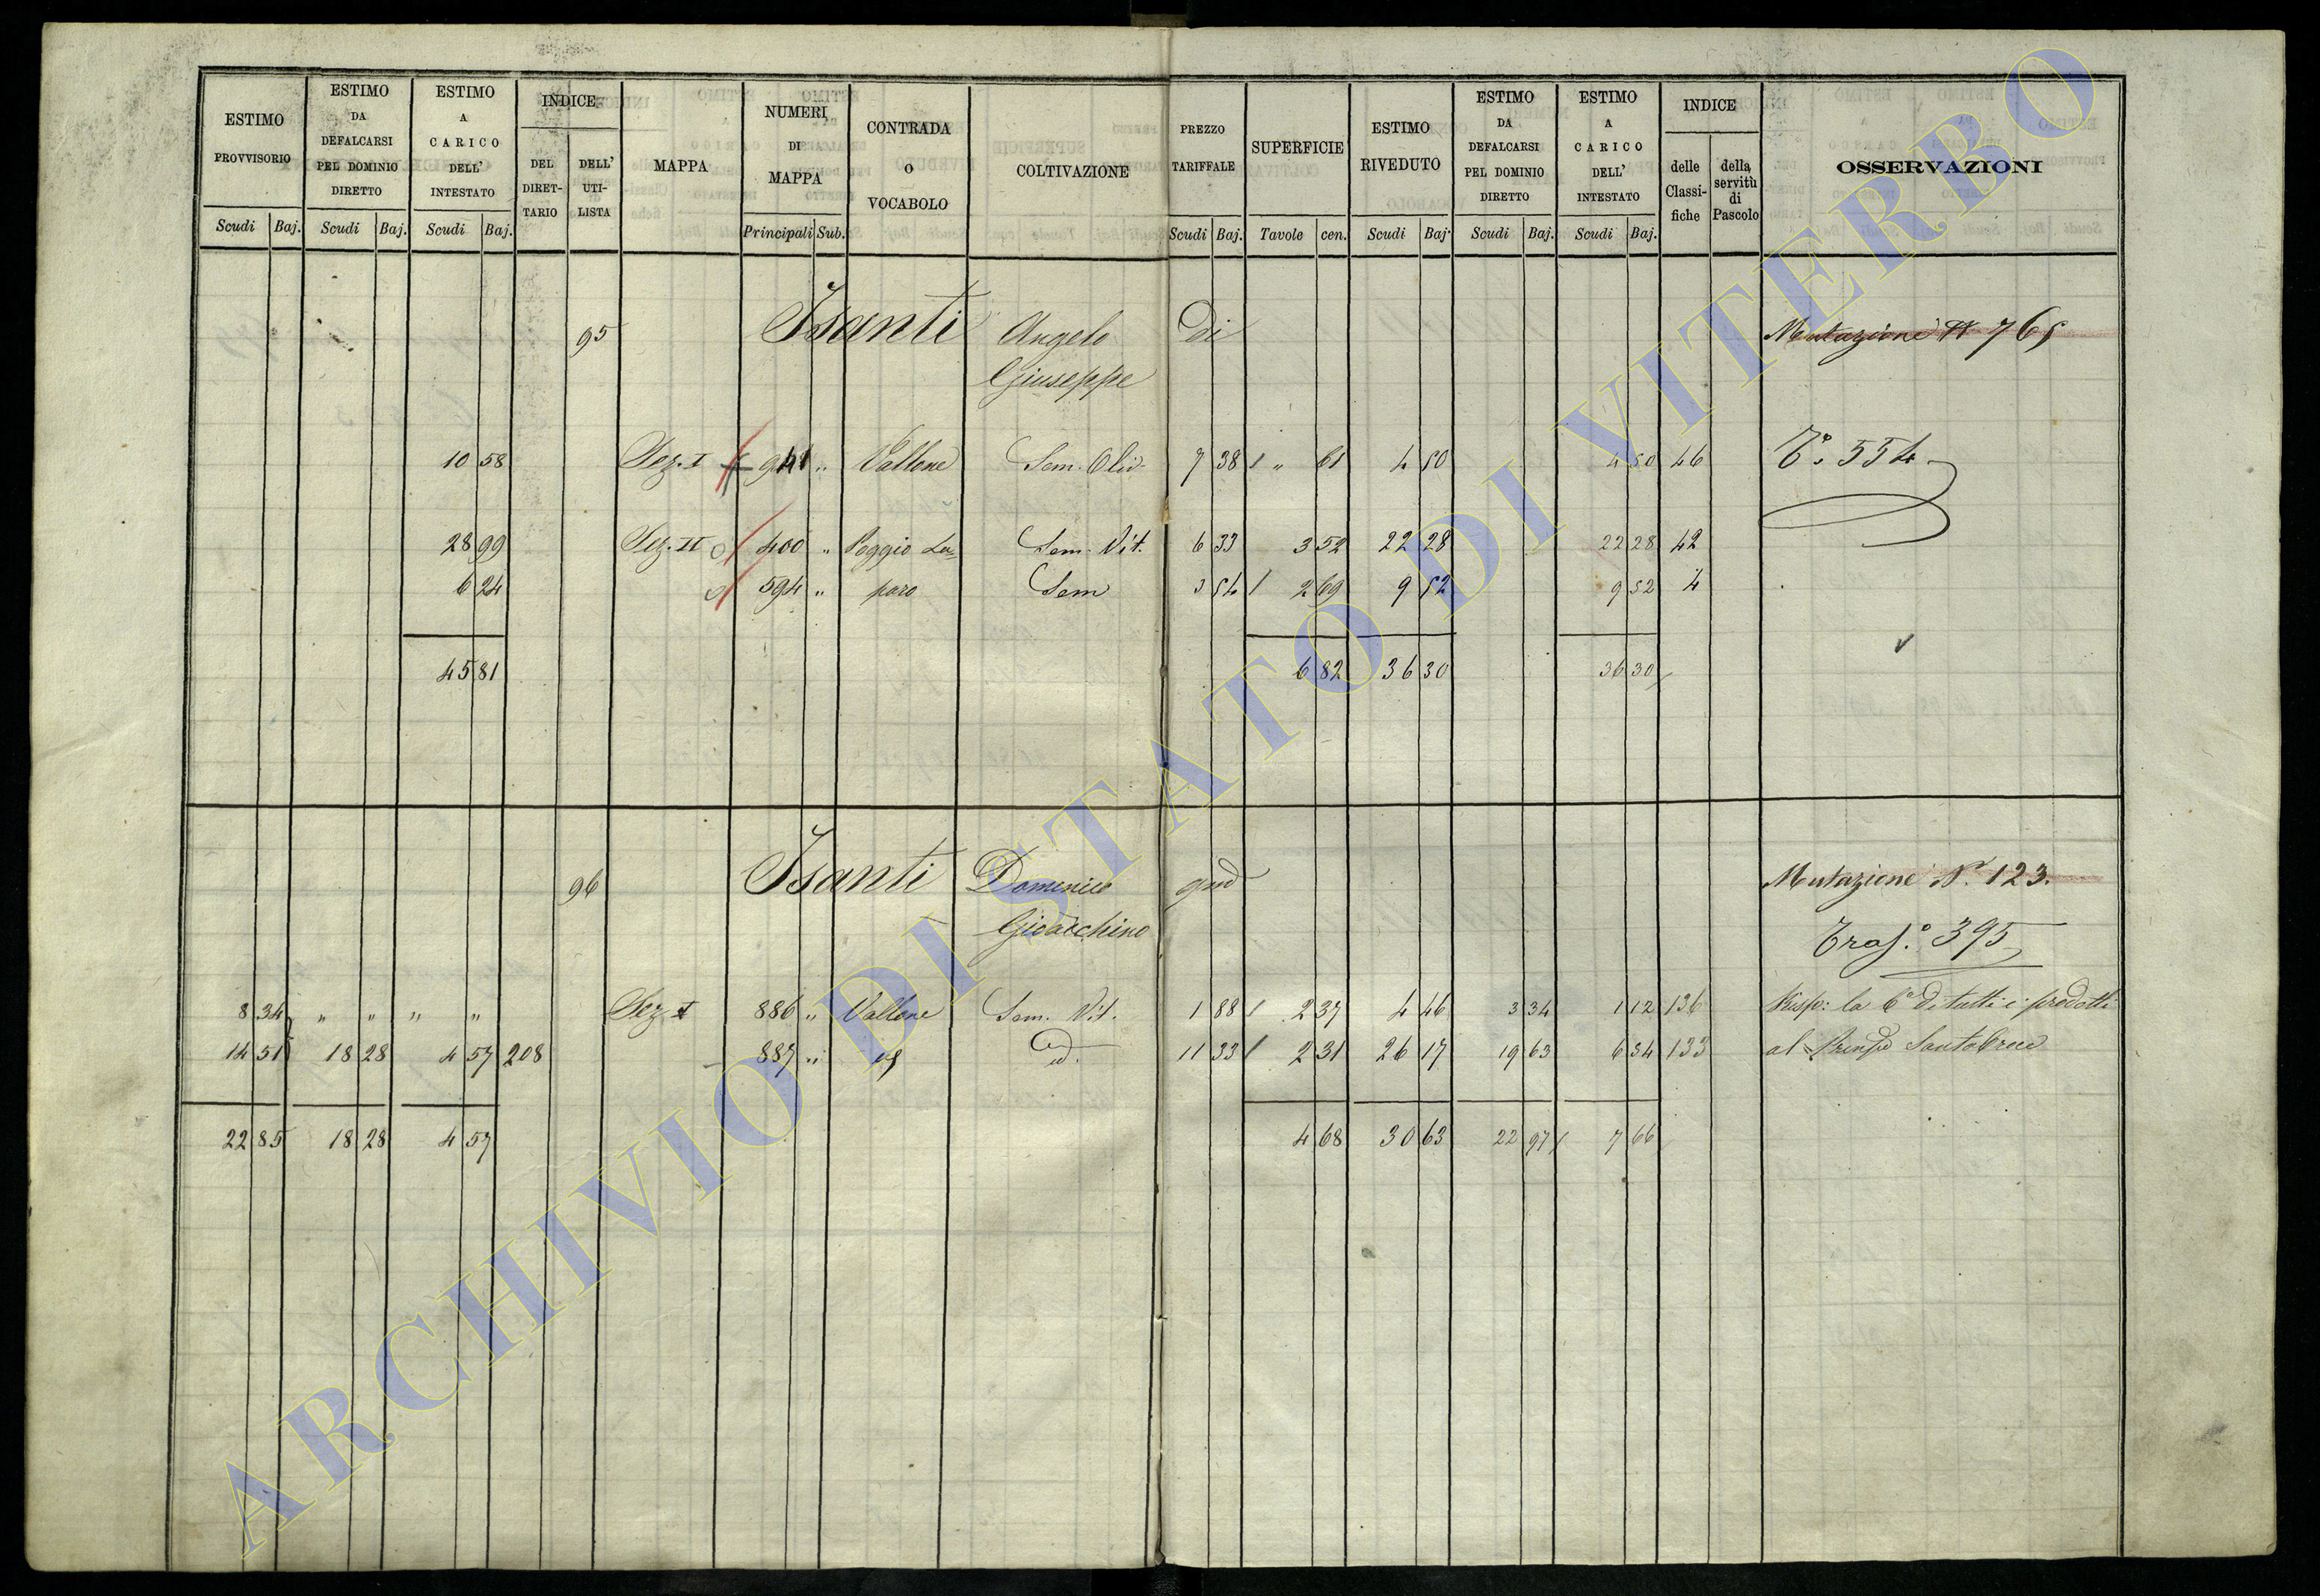 ESTIMO PROVVISORIO
Scudi Baj.
ESTIMO DA DEFALCARSI PEL DOMINIO DIRETTO
Scudi Baj.
ESTIMO A CARICO DELL' INTESTATO
Scudi Baj.
INDICE
DEL DIRET- TARIO
DELL' UTI- LISTA
MAPPA
NUMERI DI MAPPA
Principali Sub.
CONTRADA O VOCABOLO
COLTIVAZIONE
PREZZO TARIFFALE
Scudi Baj.
SUPERFICIE
Tavole cen.
ESTIMO RIVEDUTO
Scudi Baj.
ESTIMO DA DEFALCARSI PEL DOMINIO DIRETTO
Scudi Baj.
ESTIMO A CARICO DELL' INTESTATO
Scudi Baj.
INDICE
delle Classi- fiche
della servitù di Pascolo
OSSERVAZIONI
95 Isanti Angelo di Mutazione N 765
Giuseppe
10 58 Sez. I 941 " Vallone Sem. Oliv. 7 38 " 61 4 50 4 50 46 T.° 554
28 99 Sez. II 400 " Poggio Lu= Sem. Vit. 6 33 3 52 22 28 22 28 42
6 24 594 " paro Sem 3 54 2 69 9 52 9 52 4
45 81 6 82 36 30 36 30
96 Isanti Domenico qud Mutazione N. 123.
Gioacchino Tras.° 395
8 34 " " " " Sez I 886 " Vallone Sem. Vit. 1 88 2 37 4 46 3 34 1 12 136 Risp: la 6a di tutti i prodotti
14 51 18 28 4 57 208 887 " id. 11 33 2 31 26 17 19 63 6 54 133 al Santacroce
22 85 18 28 4 57 4 68 30 63 22 97 7 66
ARCHIVIO DI STATO DI VITERBO